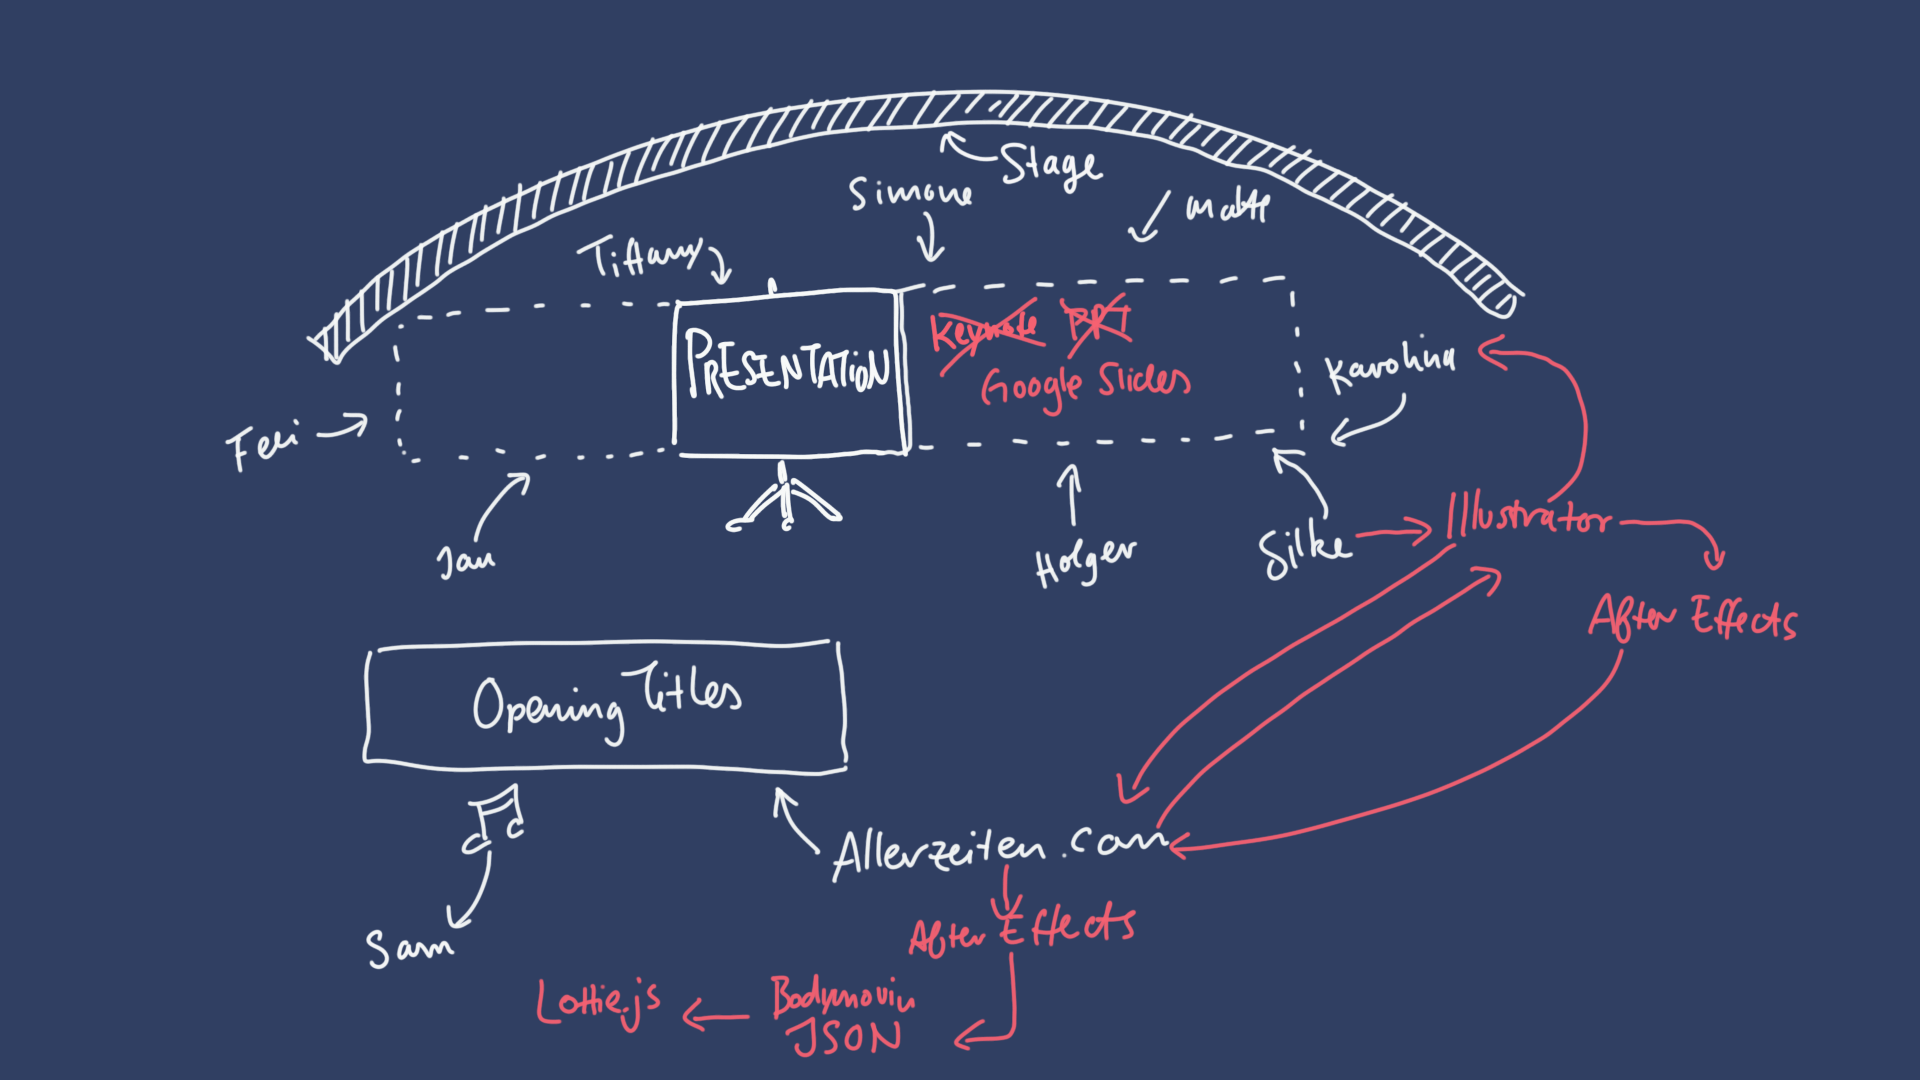 Stage
Simone
Matt
Tiffany
PRESENTATION
Keynote PPT
Google Slides
Karolina
Feli
Jan
Holger
Silke
Illustrator
After Effects
Opening Titles
Allerzeiten.com
Sam
After Effects
Lottie.js
Bodymovin
JSON